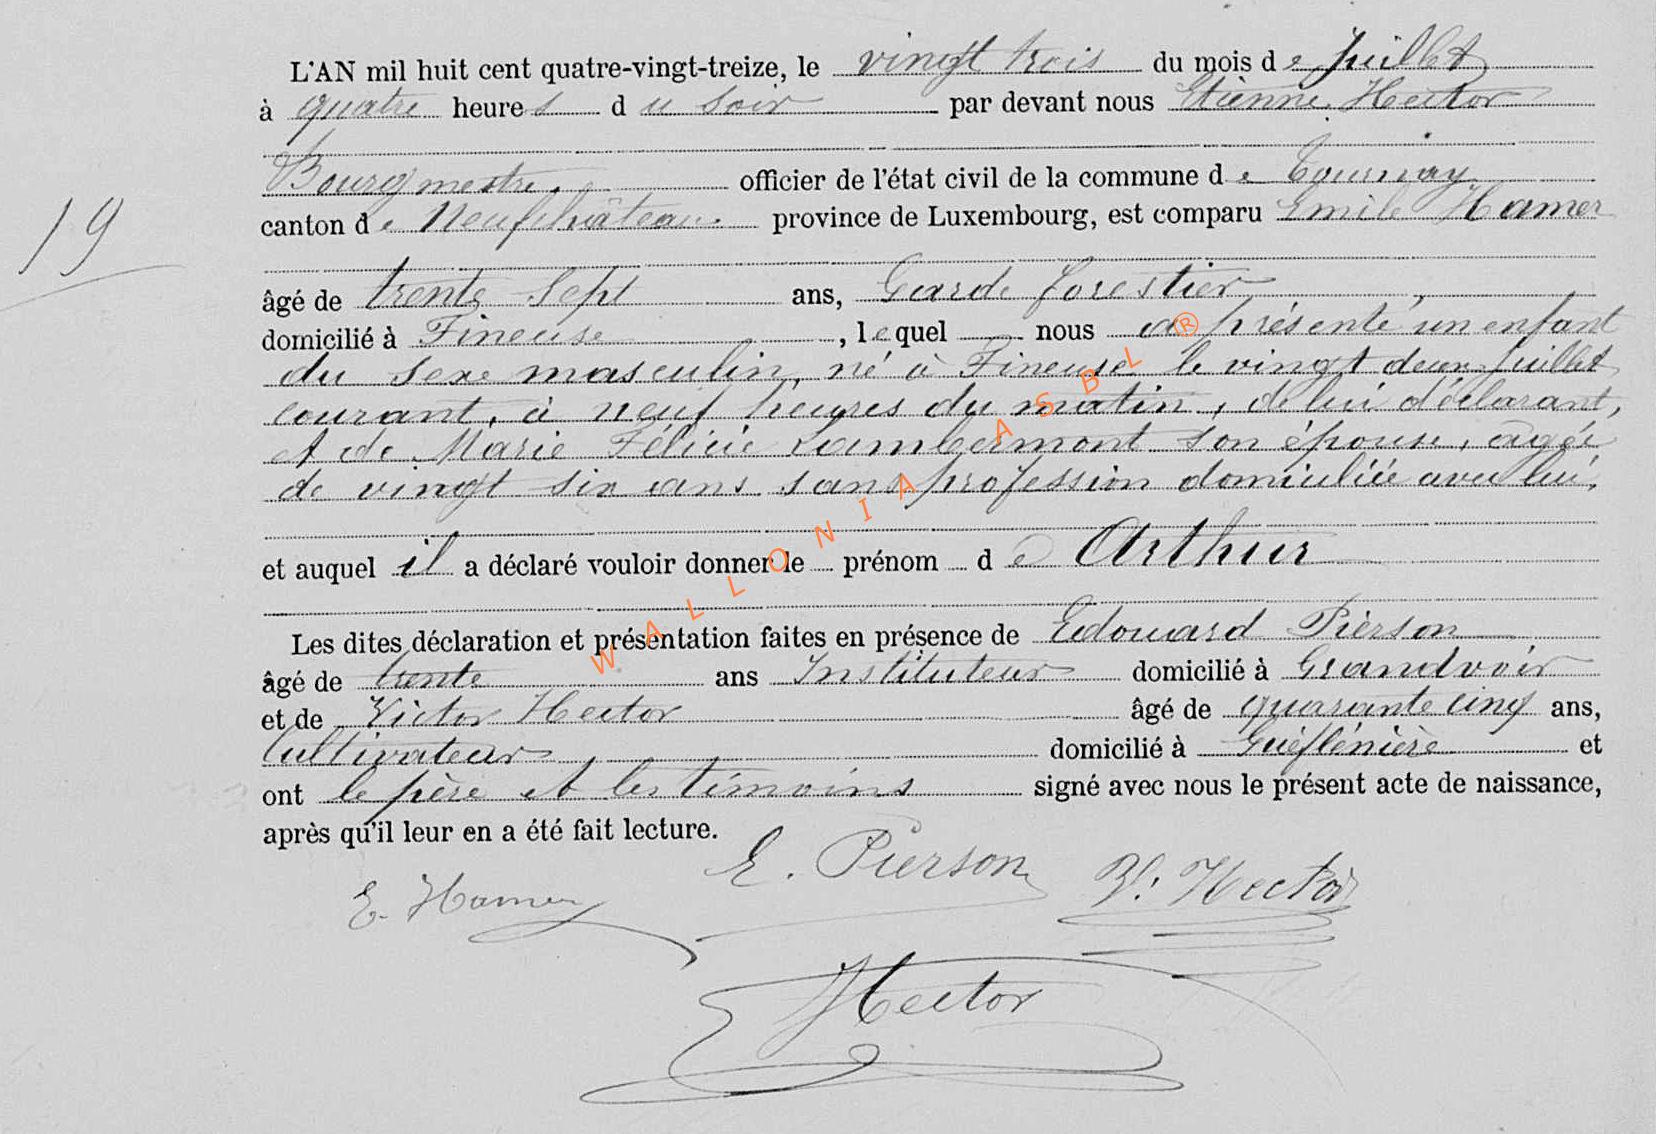 L'AN mil huit cent quatre-vingt-treize, le vingt trois du mois de Juillet
à quatre heures du soir par devant nous Etienne Hector
Bourgmestre, officier de l'état civil de la commune de Tournay
canton de Neufchâteau province de Luxembourg, est comparu Emile Hamer
19
âgé de trente sept ans, Garde forestier,
domicilié à Fineuse, lequel nous a présenté un enfant
du sexe masculin, né à Fineuse le vingt deux Juillet
courant, à neuf heures du matin, de lui déclarant,
et de Marie Félicie Lambermont son épouse, agée
de vingt six ans sans profession domiciliée avec lui,
et auquel il a déclaré vouloir donner le prénom de Arthur
Les dites déclaration et présentation faites en présence de Edouard Pierson
âgé de trente ans Instituteur domicilié à Grandvoir
et de Victor Hector âgé de quarante cinq ans,
Cultivateur domicilié à et
ont le père et les témoins signé avec nous le présent acte de naissance,
après qu'il leur en a été fait lecture.
E. Pierson
V. Hector
E. Hamer
Hector
WALLONIA ASBL ®